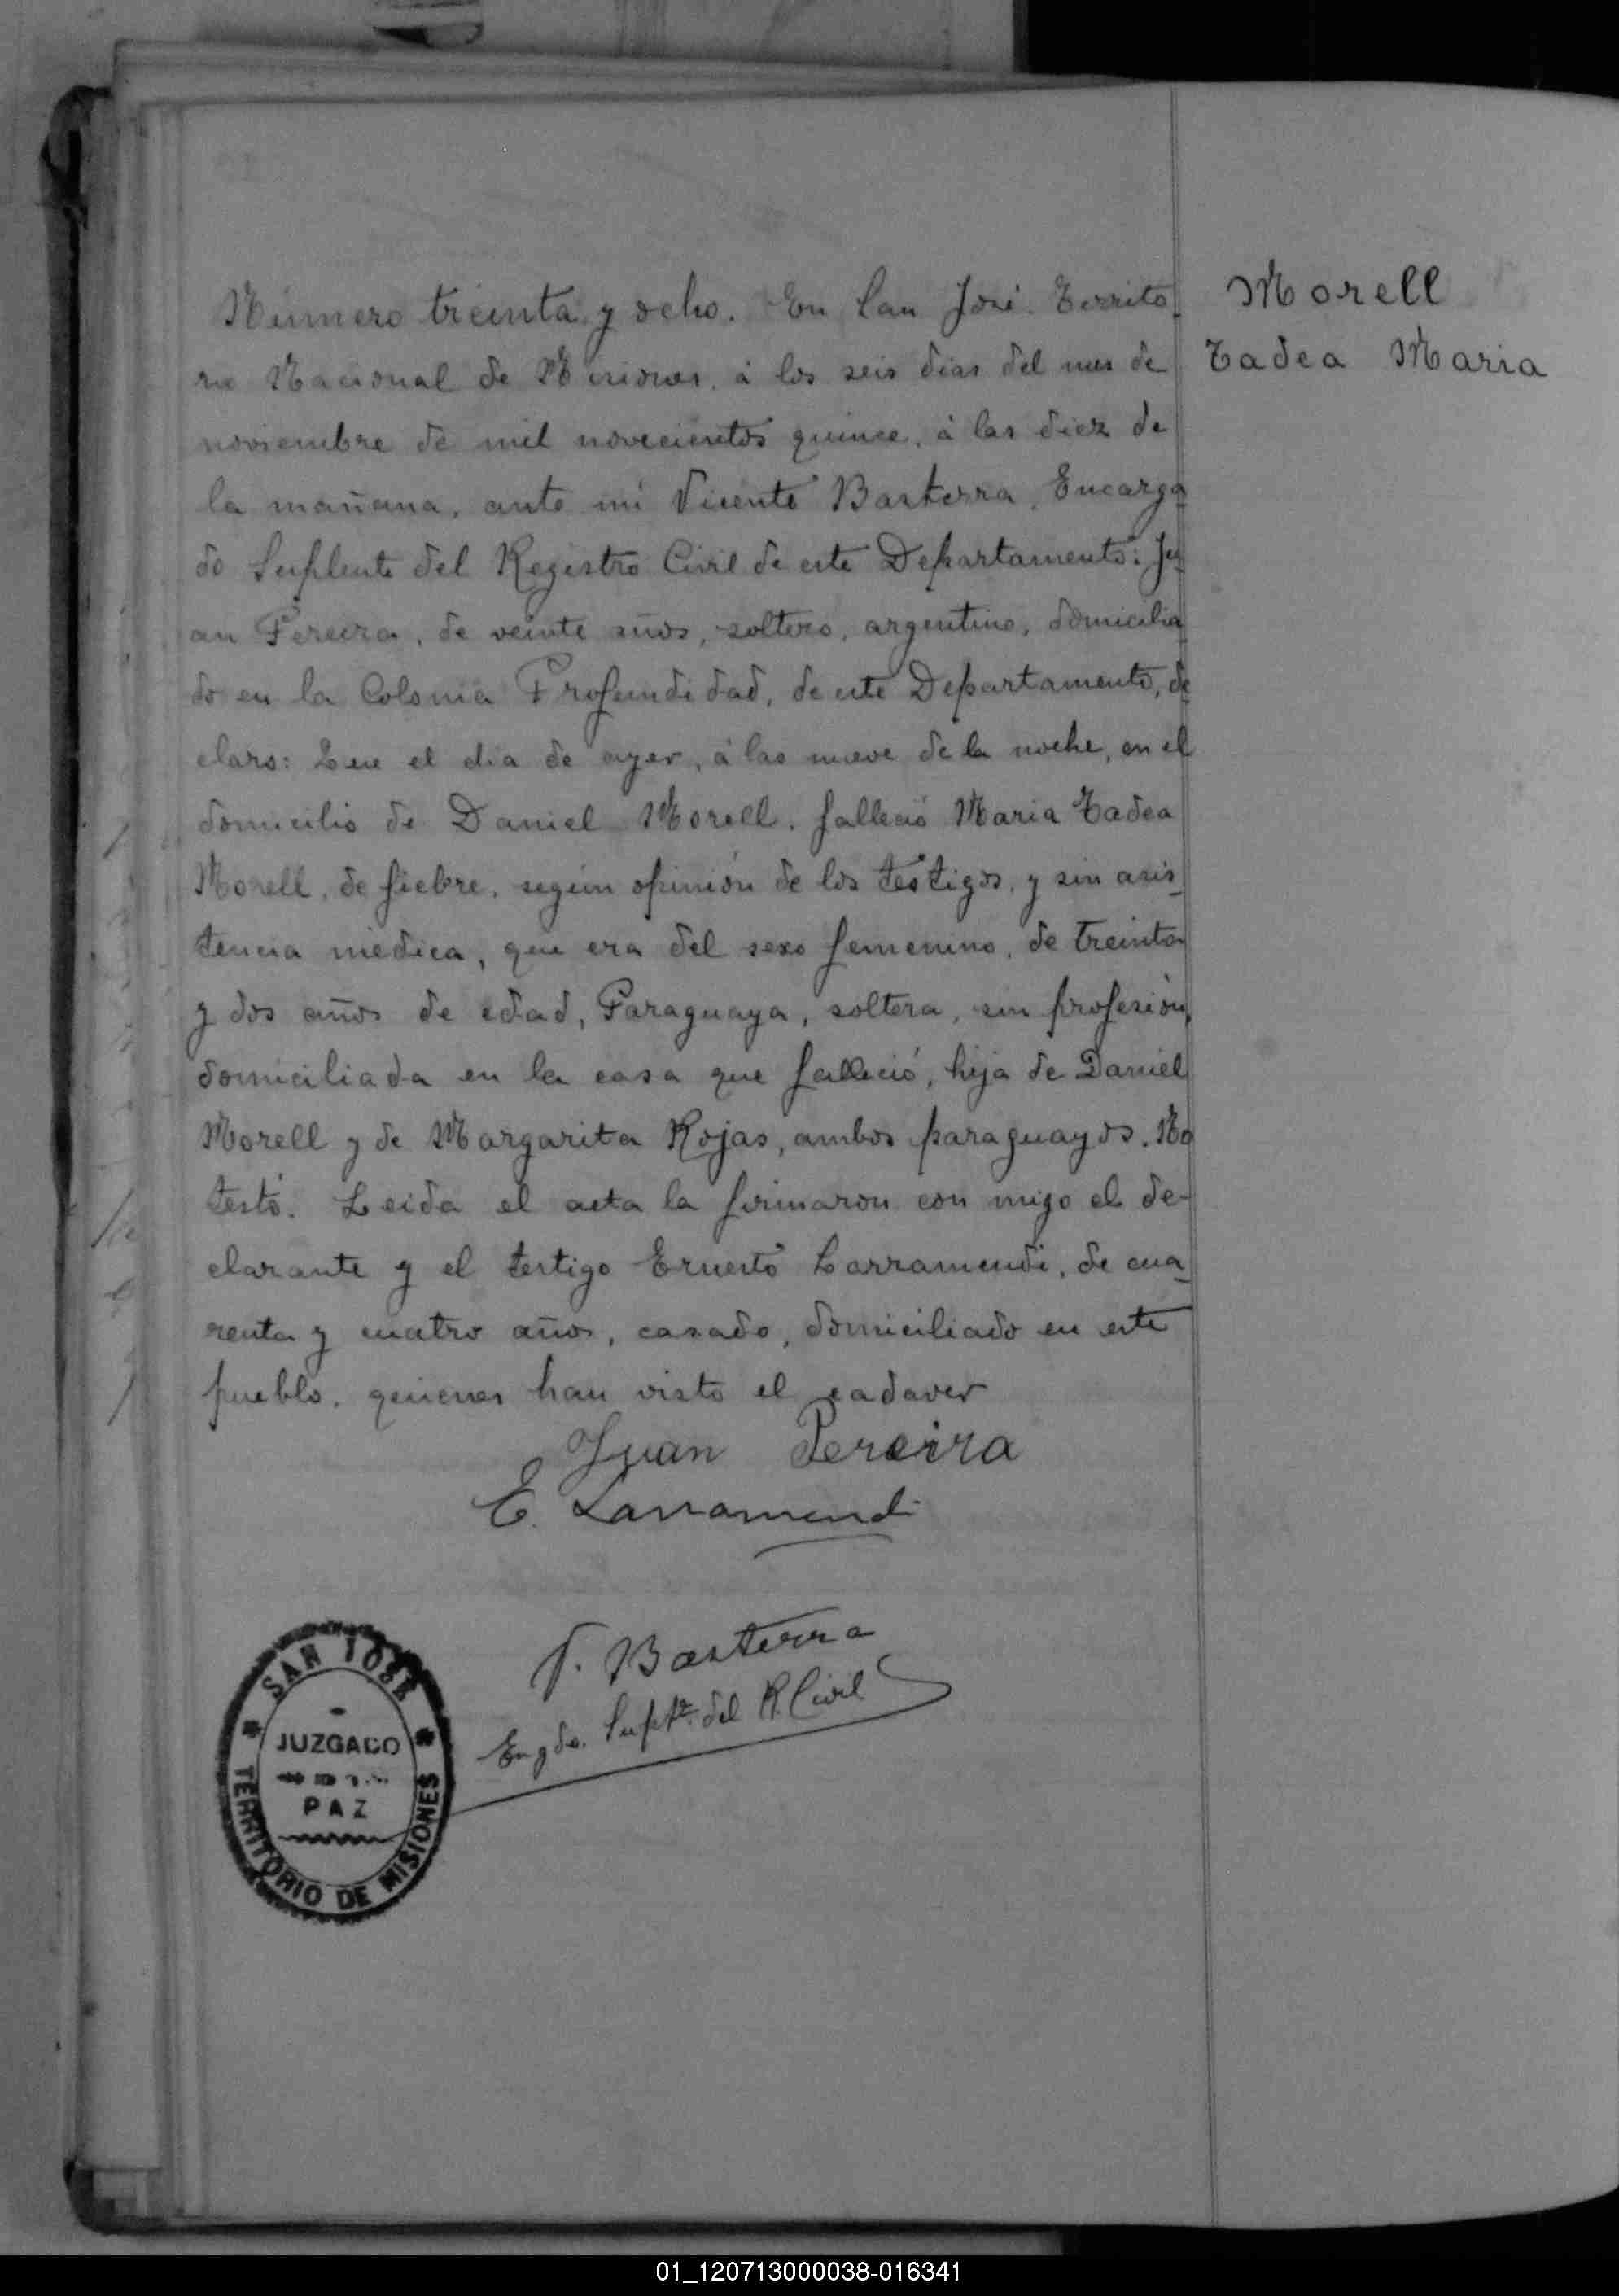 Morell
Tadea Maria
Número treinta y ocho. En San José. Territo-
rio Nacional de Misiones, á los seis dias del mes de
noviembre de mil novecientos quince, á las diez de
la mañana, ante mi Vicente Basterra, Encarga-
do Suplente del Registro Civil de este Departamento: Ju-
an Pereira, de veinte años, soltero, argentino, domicilia-
do en la Colonia Profundidad, de este Departamento, de-
claro: Que el dia de ayer, á las nueve de la noche, en el
domicilio de Daniel Morell, falleció Maria Tadea
Morell, de fiebre, según opinión de los testigos, y sin asis-
tencia médica, que era del sexo femenino, de treinta
y dos años de edad, Paraguaya, soltera, sin profesión,
domiciliada en la casa que falleció, hija de Daniel
Morell y de Margarita Rojas, ambos paraguayos. No
testó. Leida el acta la firmaron con migo el de-
clarante y el testigo Ernesto Larramendi, de cua-
renta y cuatro años, casado, domiciliado en este
pueblo, quienes han visto el cadaver
Juan Pereira
E. Larramendi
V. Basterra
Engdo. Supte. del R. Civil
SAN JOSÉ
JUZGADO
PAZ
TERRITORIO DE MISIONES
01_120713000038-016341